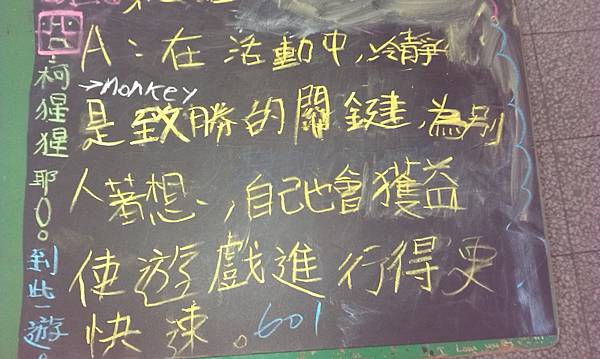 A：在活動中，冷靜
→monkey
是致勝的關鍵，為別
人著想、，自己也會獲益
使遊戲進行得更
快速。601
柯猩猩耶()。到此一遊。